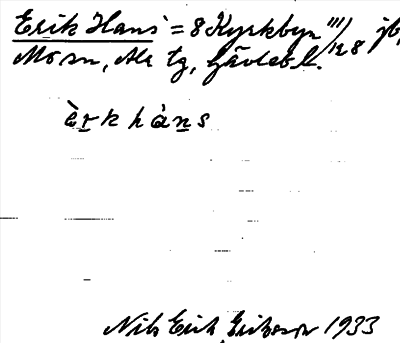 Erik Hans = 8 Kyrkbyn III/128 jb,
Mo sn, Ale tg, Gävleb l.
èrk hàns
Nils Erik Eriksson 1933